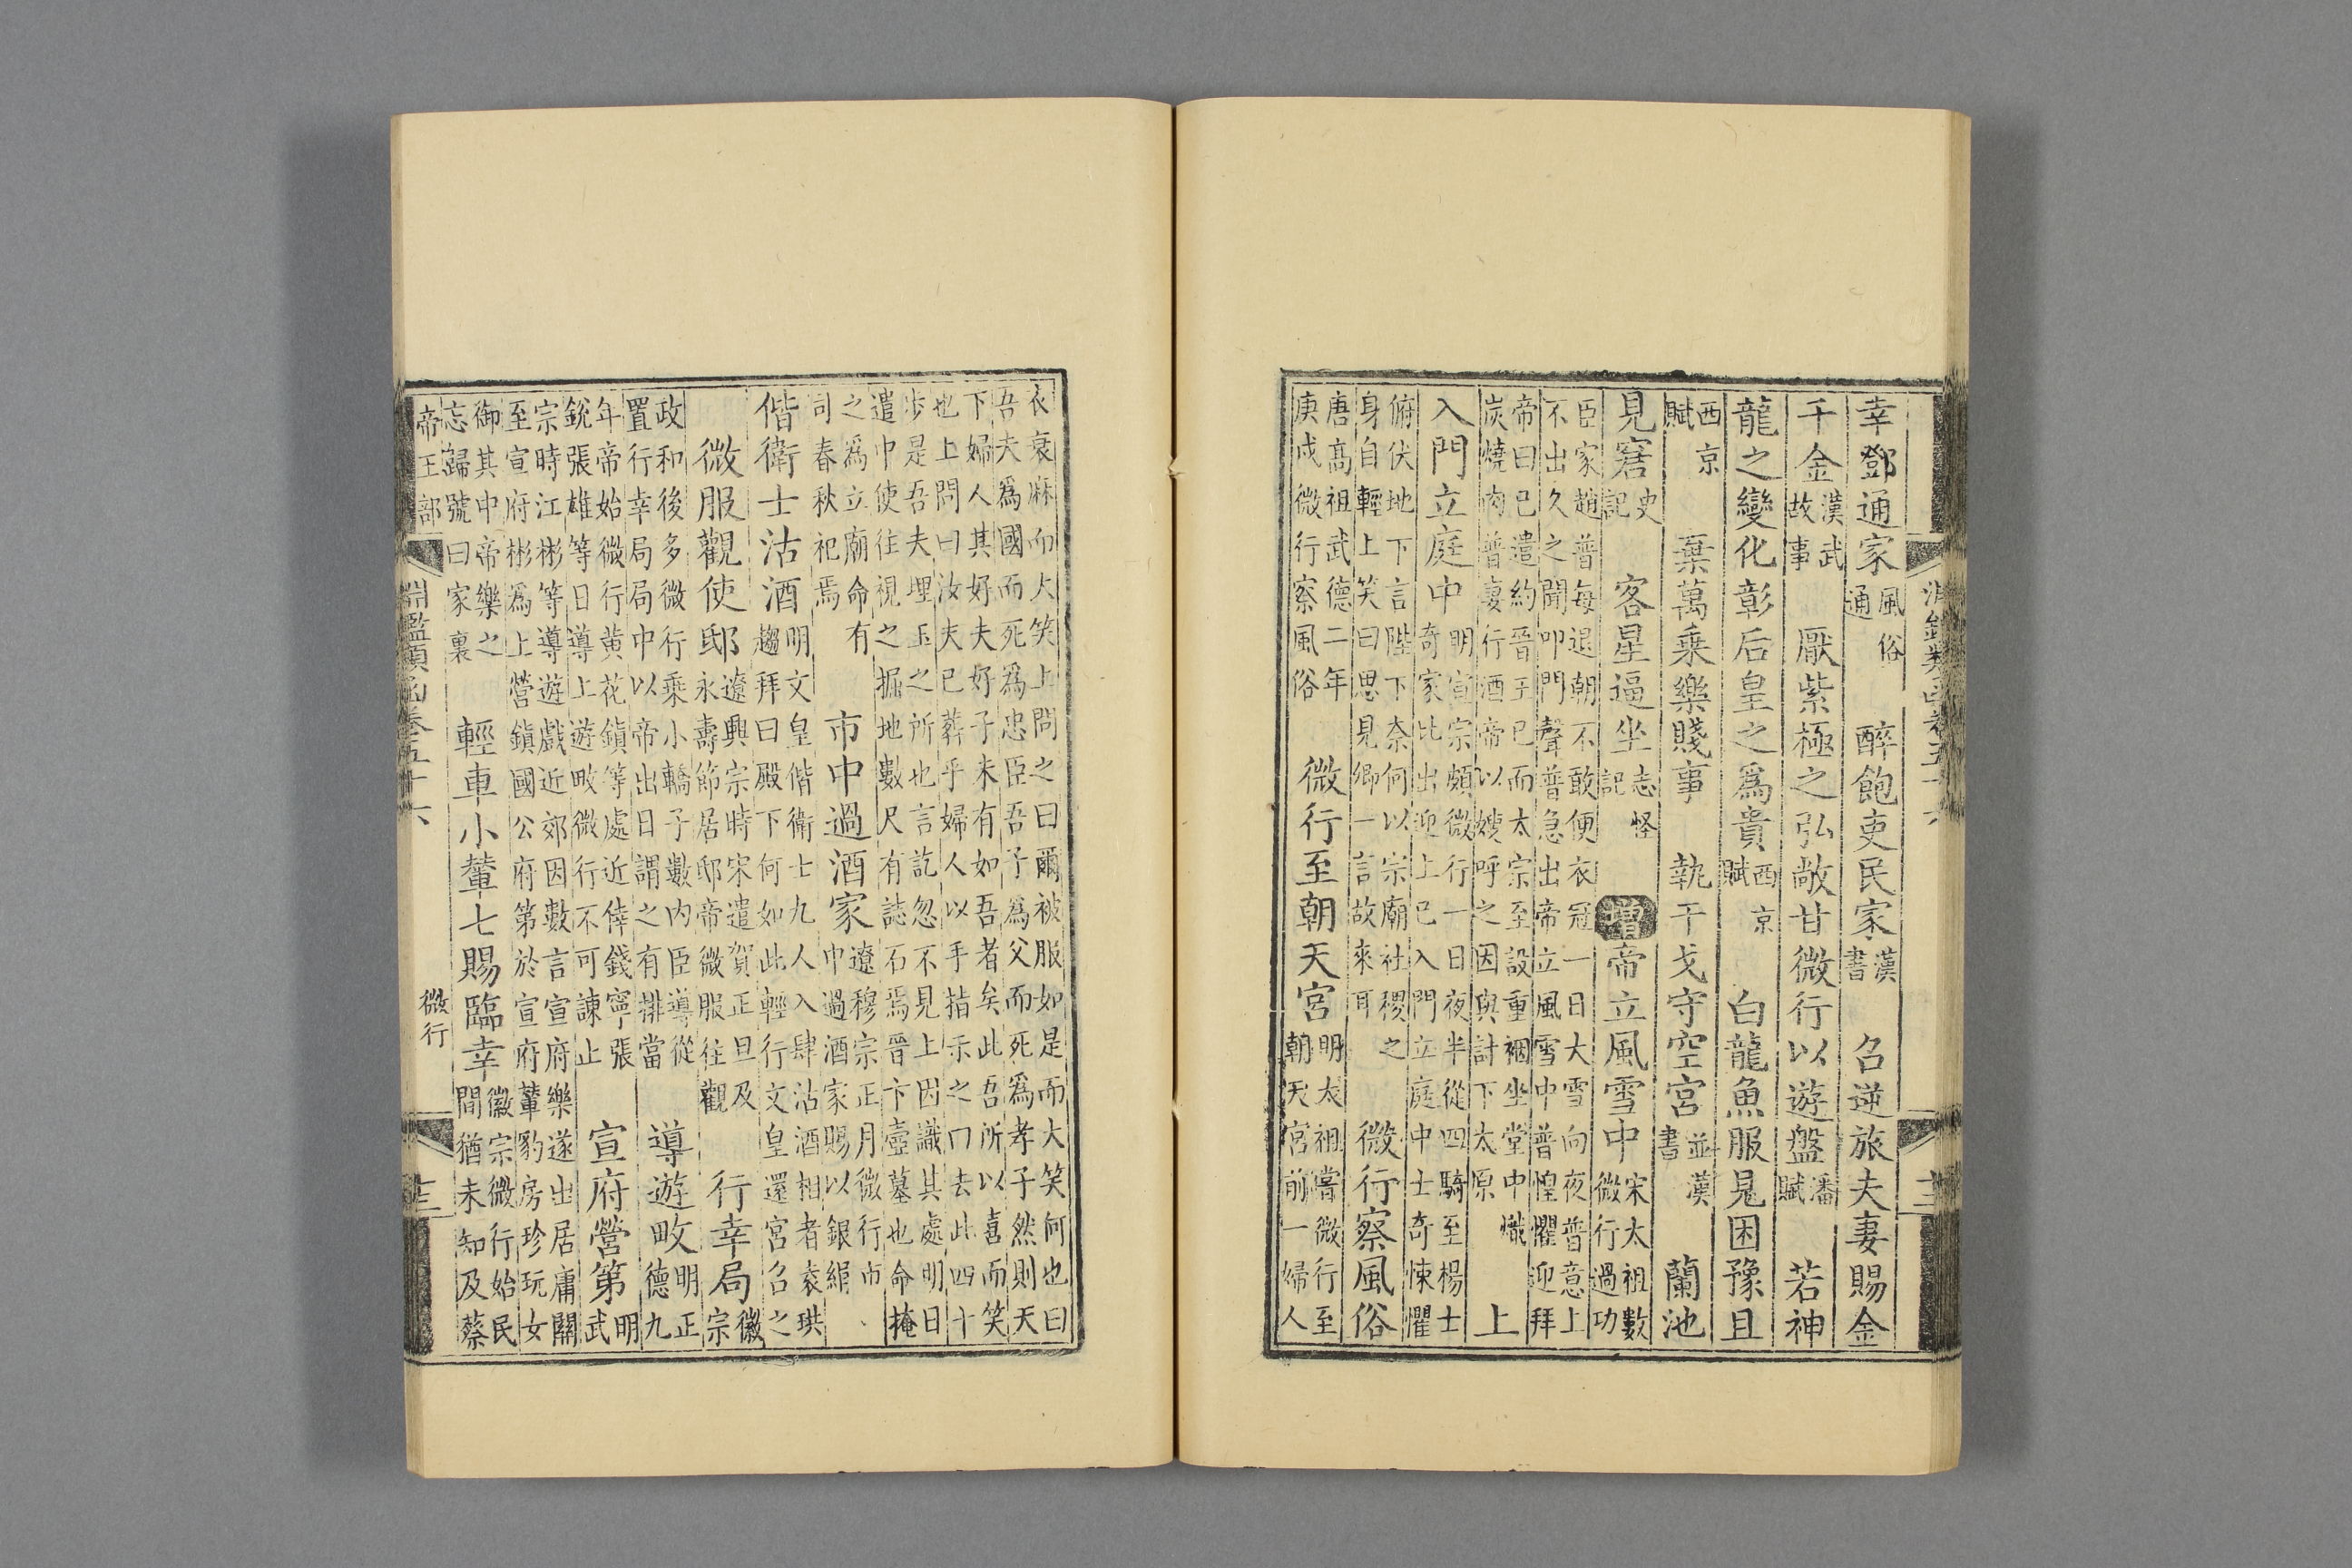 淵鑑類函卷五十六
十二
幸鄧通家
風俗
通
醉飽吏民家
漢
書
召逆旅夫妻賜金
千金
漢武
故事
厭紫極之弘敞甘微行以遊盤
潘
賦
若神
龍之變化彰后皇之爲貴
西京
賦
白龍魚服見困豫且
西京
賦
棄萬乗樂賤事
執干戈守空宮
並漢
書
蘭池
見窘
史
記
客星逼坐
志怪
記
增
帝立風雪中
宋太祖數
微行過功
臣家趙普每退朝不敢便衣冠一日大雪向夜普意上
不出久之聞叩門聲普急出帝立風雪中普惶懼迎拜
帝曰已遣約晉王已而太宗至設重裀坐堂中熾
炭燒肉普妻行酒帝以嫂呼之因與計下太原
上
入門立庭中
明宣宗頗微行一日夜半從四騎至楊士
奇家比出迎上已入門立庭中士奇悚懼
俯伏地下言陛下奈何以宗廟社稷之
身自輕上笑曰思見卿一言故來耳
微行察風俗
唐高祖武德二年
庚戌微行察風俗
微行至朝天宮
明太祖嘗微行至
朝天宮前一婦人
衣衰麻而大笑上問之曰爾被服如是而大笑何也曰
吾夫爲國而死爲忠臣吾子爲父而死爲孝子然則天
下婦人其好夫好子未有如吾者矣此吾所以喜而笑
也上問曰汝夫已葬乎婦人以手指示之曰去此四十
步是吾夫埋玉之所也言訖忽不見上因識其處明日
遣中使往視之掘地數尺有誌石焉晉卞壼墓也命掩
之爲立廟命有
司春秋祀焉
市中過酒家
遼穆宗正月微行市
中過酒家賜以銀絹
偕衛士沽酒
明文皇偕衛士九人入肆沽酒相者袁珙
趨拜曰殿下何如此輕行文皇還宮召之
微服觀使邸
遼興宗時宋遣賀正旦及
永壽節居邸帝微服往觀
行幸局
徽
宗
政和後多微行乗小轎子數內臣導從
置行幸局局中以帝出日謂之有排當
導遊畋
明正
德九
年帝始微行黃花鎮等處近倖錢寧張
銳張雄等日導上遊畋微行不可諫止
宣府營第
明
武
宗時江彬等導遊戲近郊因數言宣府樂遂出居庸關
至宣府彬爲上營鎮國公府第於宣府輦豹房珍玩女
御其中帝樂之
忘歸號曰家裏
輕車小輦七賜臨幸
徽宗微行始民
間猶未知及蔡
帝王部
淵鑑類函卷五十六
微行
十三